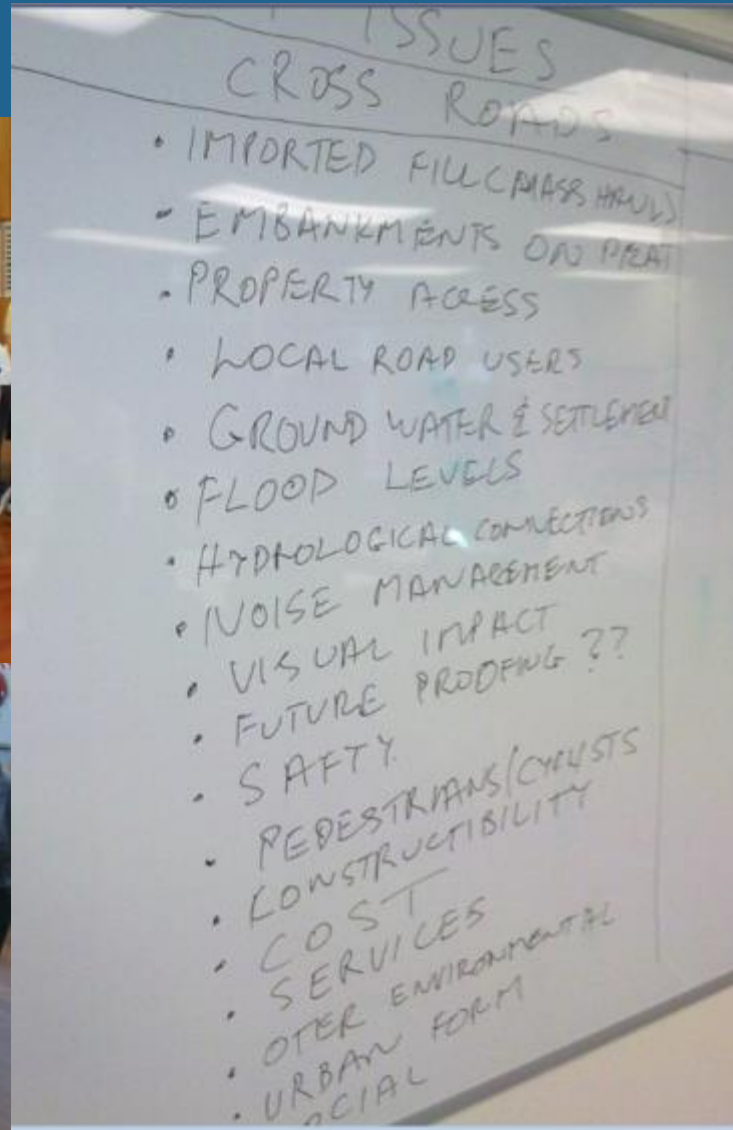 ISSUES
CROSS ROADS
• IMPORTED FILL (MASS HAUL)
- EMBANKMENTS ON PEAT
• PROPERTY ACCESS
• LOCAL ROAD USERS
• GROUND WATER & SETTLEMENT
• FLOOD LEVELS
• HYDROLOGICAL CONNECTIONS
• NOISE MANAGEMENT
• VISUAL IMPACT
• FUTURE PROOFING ??
• SAFTY
• PEDESTRIANS/CYCLISTS
• CONSTRUCTIBILITY
• COST
• SERVICES
• OTER ENVIRONMENTAL
• URBAN FORM
SOCIAL